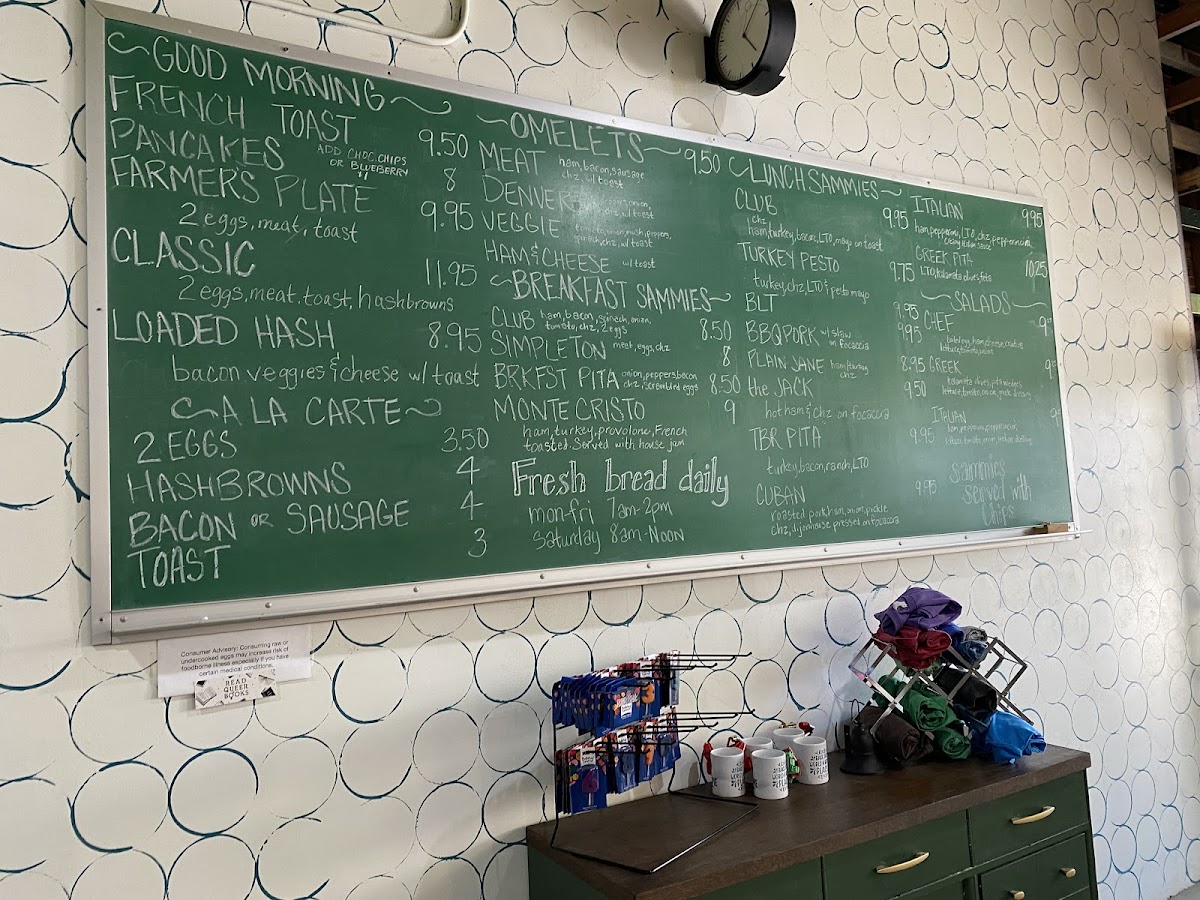 GOOD MORNING
FRENCH TOAST 9.50
PANCAKES ADD CHOC. CHIPS OR BLUEBERRY $1 8
FARMER'S PLATE 9.95
2 eggs, meat, toast
CLASSIC 11.95
2 eggs, meat, toast, hashbrowns
LOADED HASH 8.95
bacon veggies & cheese w/ toast
A LA CARTE
2 EGGS 3.50
HASHBROWNS 4
BACON OR SAUSAGE 4
TOAST 3
OMELETS 9.50
MEAT ham, bacon, sausage
chz w/ toast
DENVER
w/ toast
VEGGIE
spinach, chz, w/ toast
HAM & CHEESE w/ toast
BREAKFAST SAMMIES
CLUB ham, bacon, spinach, onion,
tomato, chz, 2 eggs 8.50
SIMPLETON meat, eggs, chz 8
BRKFST PITA onion, peppers, bacon
chz, scrambled eggs 8.50
MONTE CRISTO 9
ham, turkey, provolone, French
toasted. Served with house jam
Fresh bread daily
mon-fri 7am-2pm
Saturday 8am-NOON
LUNCH SAMMIES
CLUB 9.95
chz,
ham, turkey, bacon, LTO, mayo on toast
TURKEY PESTO 9.75
turkey, chz, LTO & pesto mayo
BLT 9.95
BBQ PORK w/ slaw
on focaccia 9.95
PLAIN JANE ham, turkey
chz 8.95
the JACK 9.50
hot ham & chz on focaccia
TBR PITA 9.95
turkey, bacon, ranch, LTO
CUBAN 9.95
roasted pork, ham, onion, pickle
chz, dijonnaise pressed on focaccia
ITALIAN 9.95
ham, pepperoni, LTO, chz, pepperoncini,
creamy italian sauce
GREEK PITA 10.25
LTO, kalamata olives, feta
SALADS
CHEF
lettuce, tomato, onion
GREEK
ITALIAN
sammies
served with
chips
Consumer Advisory: Consuming raw or
undercooked eggs may increase risk of
foodborne illness especially if you have
certain medical conditions.
READ
QUEER
BOOKS